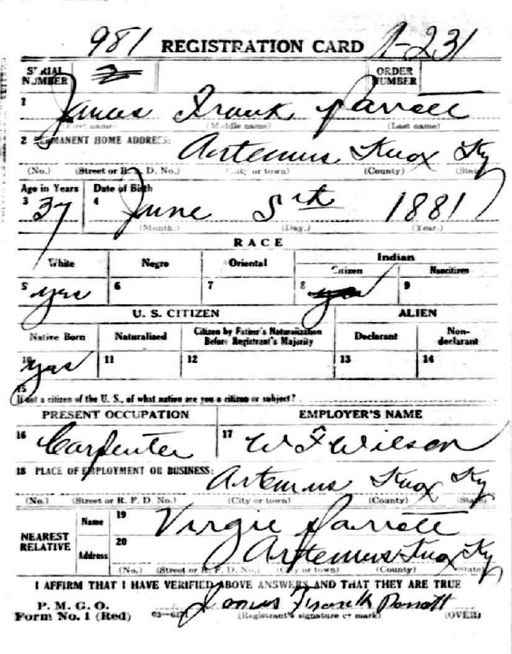 981 REGISTRATION CARD A-231
SERIAL NUMBER ORDER NUMBER
1 James Frank Parrott
(First name) (Middle name) (Last name)
2 PERMANENT HOME ADDRESS: Artemus Knox Ky
(No.) (Street or R. F. D. No.) (City or town) (County) (State)
Age in Years Date of Birth
3 37 4 June 5th 1881
(Month.) (Day.) (Year.)
RACE
White Negro Oriental Indian
Citizen Noncitizen
5 yes 6 7 8 yes 9
U. S. CITIZEN ALIEN
Native Born Naturalized Citizen by Father's Naturalization Before Registrant's Majority Declarant Non-declarant
10 yes 11 12 13 14
15
If not a citizen of the U. S., of what nation are you a citizen or subject?
PRESENT OCCUPATION EMPLOYER'S NAME
16 Carpenter 17 W F Wilson
18 PLACE OF EMPLOYMENT OR BUSINESS: Artemus Knox Ky
(No.) (Street or R. F. D. No.) (City or town) (County) (State)
NEAREST RELATIVE Name 19 Virgie Parrott
Address 20 Artemus Knox Ky
(No.) (Street or R. F. D. No.) (City or town) (County) (State)
I AFFIRM THAT I HAVE VERIFIED ABOVE ANSWERS AND THAT THEY ARE TRUE
P. M. G. O.
Form No. 1 (Red) James Frank Parrott
(Registrant's signature or mark) (OVER)